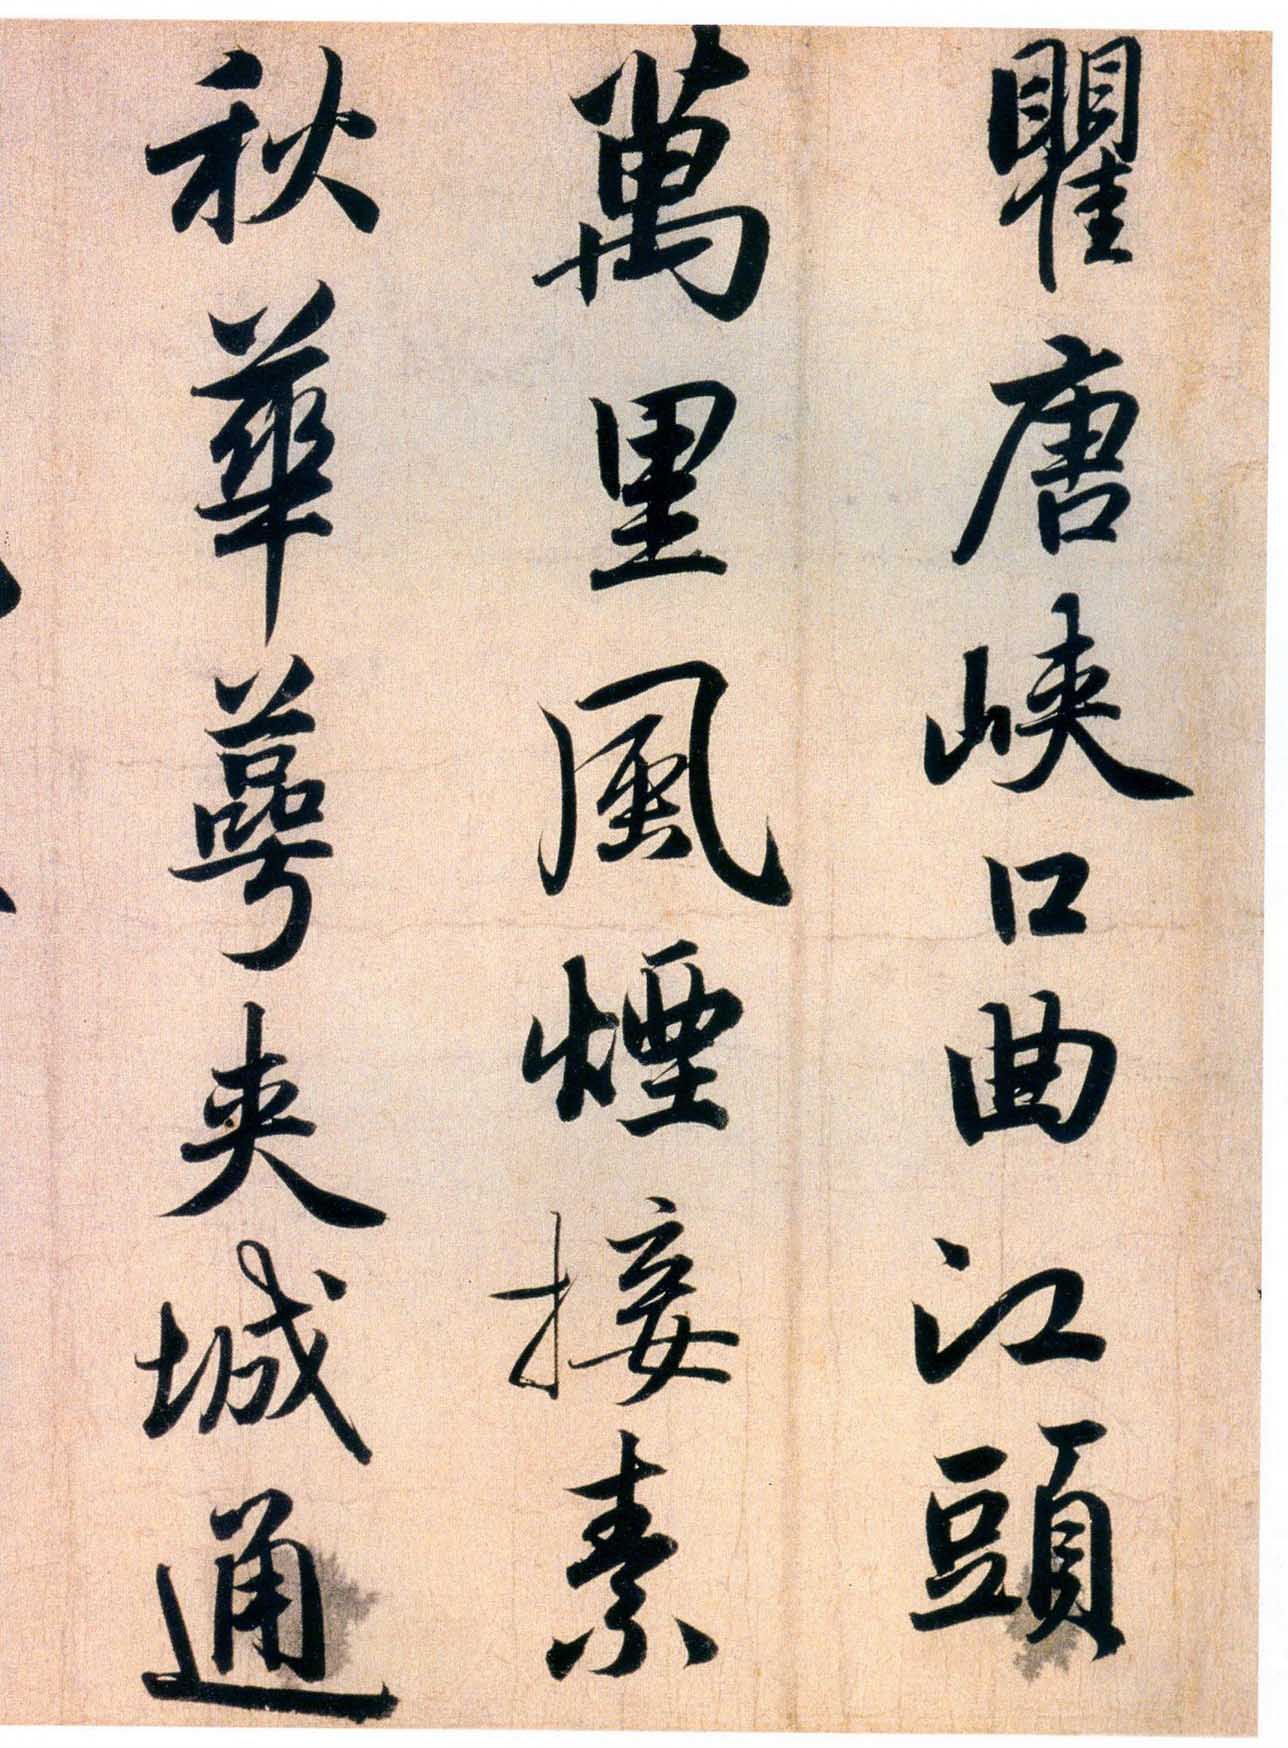 瞿唐峡口曲江頭
萬里風煙接素
秋華萼夹城通